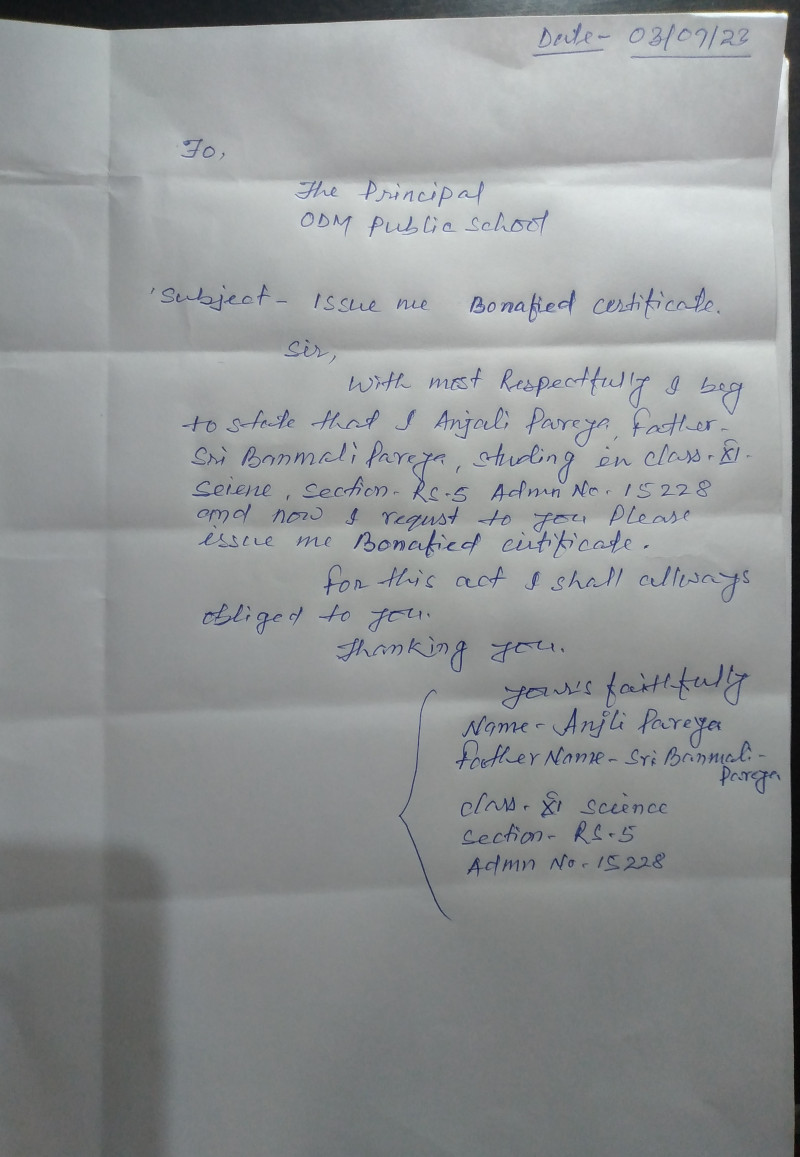 Date- 03/09/23
To,
The Principal
ODM Public School
Subject- Issue me Bonafied certificate.
Sir,
With most Respectfully I beg
to state that I Anjali Pareya, Father-
Sri Banmali Pareya, studing in class. XI.
Sciene, Section- RS-5 Admn No. 15228
and now I requst to you Please
issue me Bonafied cirtificate.
For this act I shall allways
obliged to you.
Thanking you.
your's faithfully
Name- Anjli Pareya
Father Name- Sri Banmali-
Pareya
class. XI science
Section- RS-5
Admn No. 15228